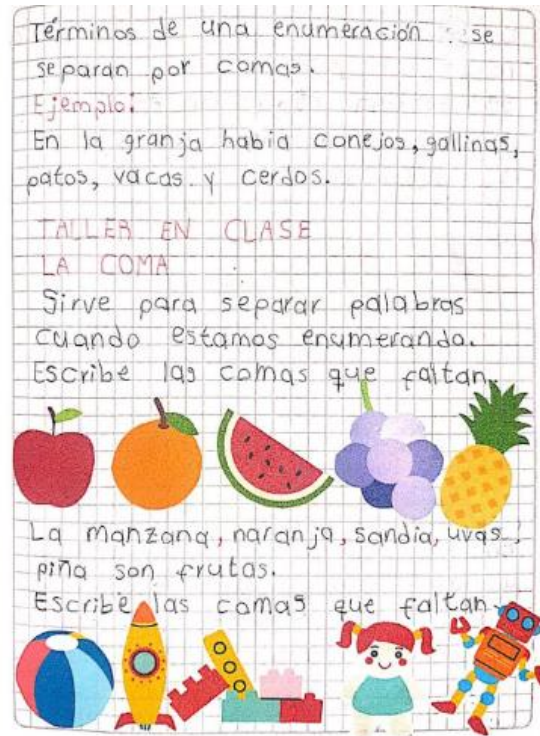 Términos de una enumeración se
separan por comas.
Ejemplo:
En la granja habia conejos, gallinas,
patos, vacas y cerdos.
TALLER EN CLASE
LA COMA
Sirve para separar palabras
cuando estamos enumerando.
Escribe las comas que faltan.
La manzana, naranja, sandia, uvas,
piña son frutas.
Escribe las comas que faltan.